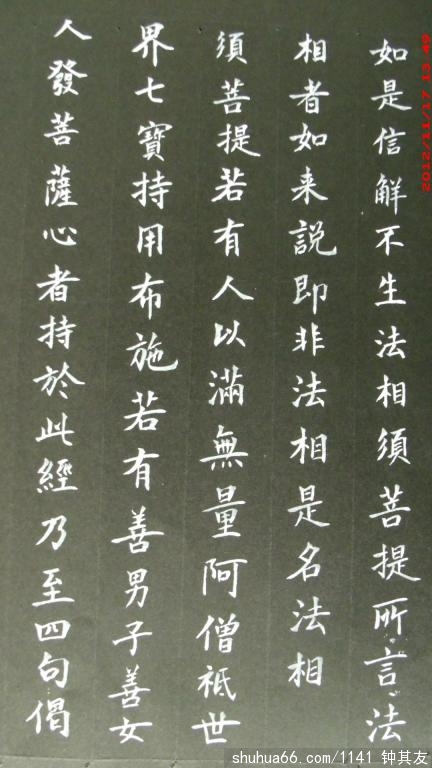 如是信解不生法相須菩提所言法
相者如来説即非法相是名法相
須菩提若有人以滿無量阿僧祇世
界七寶持用布施若有善男子善女
人發菩薩心者持於此經乃至四句偈
2012/11/17 13:49
shuhua66.com/1141 钟其友